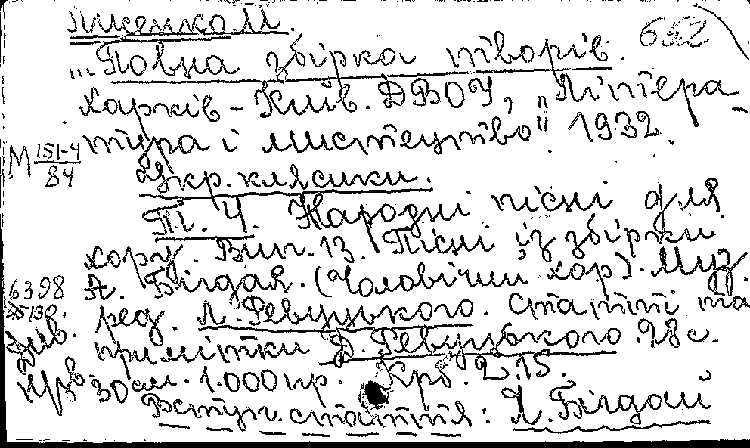 Лисенко М.
652
... Повна збірка творів.
Харків – Київ. ДВОУ, „Літера-
тура і мистецтво" 1932.
М 151-4/84
Укр. клясики.
Т. 4. Народні пісні для
хору. Вип. 13. Пісні із збірки
А. Бігдая. (Чоловічий хор). Муз
6398
ред. Л. Ревуцького. Статті та
примітки Д. Ревуцького. 28 с.
30 см. 1.000 пр. Крб. 2.15.
Вступ. стаття: Я. Бігдай